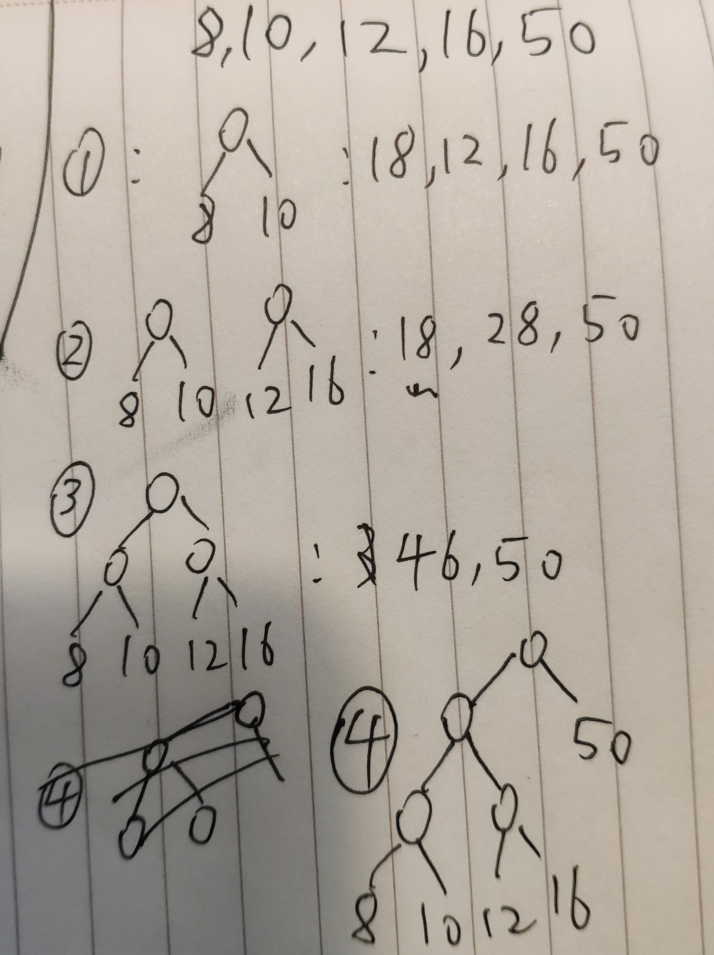 8,10,12,16,50
①: 8 10 :18,12,16,50
② 8 10 12 16 :18,28,50
③ 8 10 12 16 : 46,50
④
④ 50
8 10 12 16